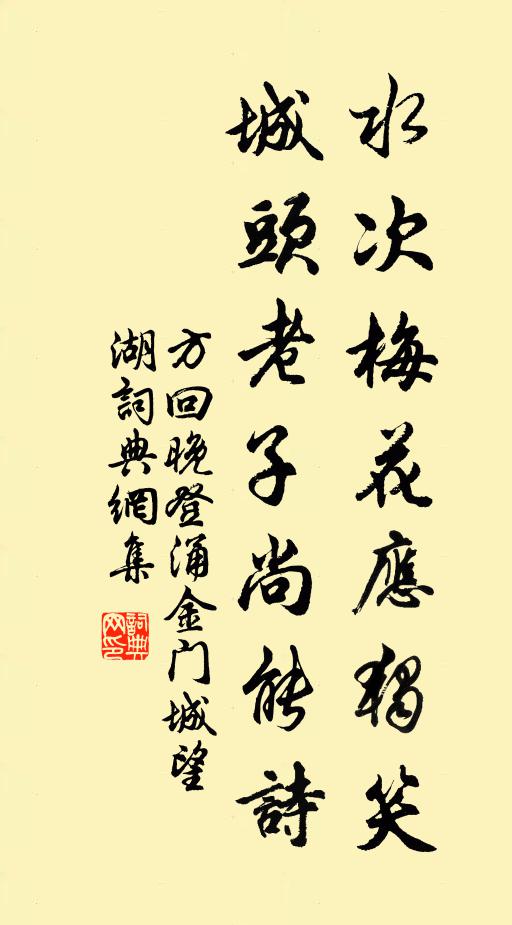 水次梅花應獨笑
城頭老子尚能詩
方回晚登涌金门城望
湖詞典網集
詞典
网印